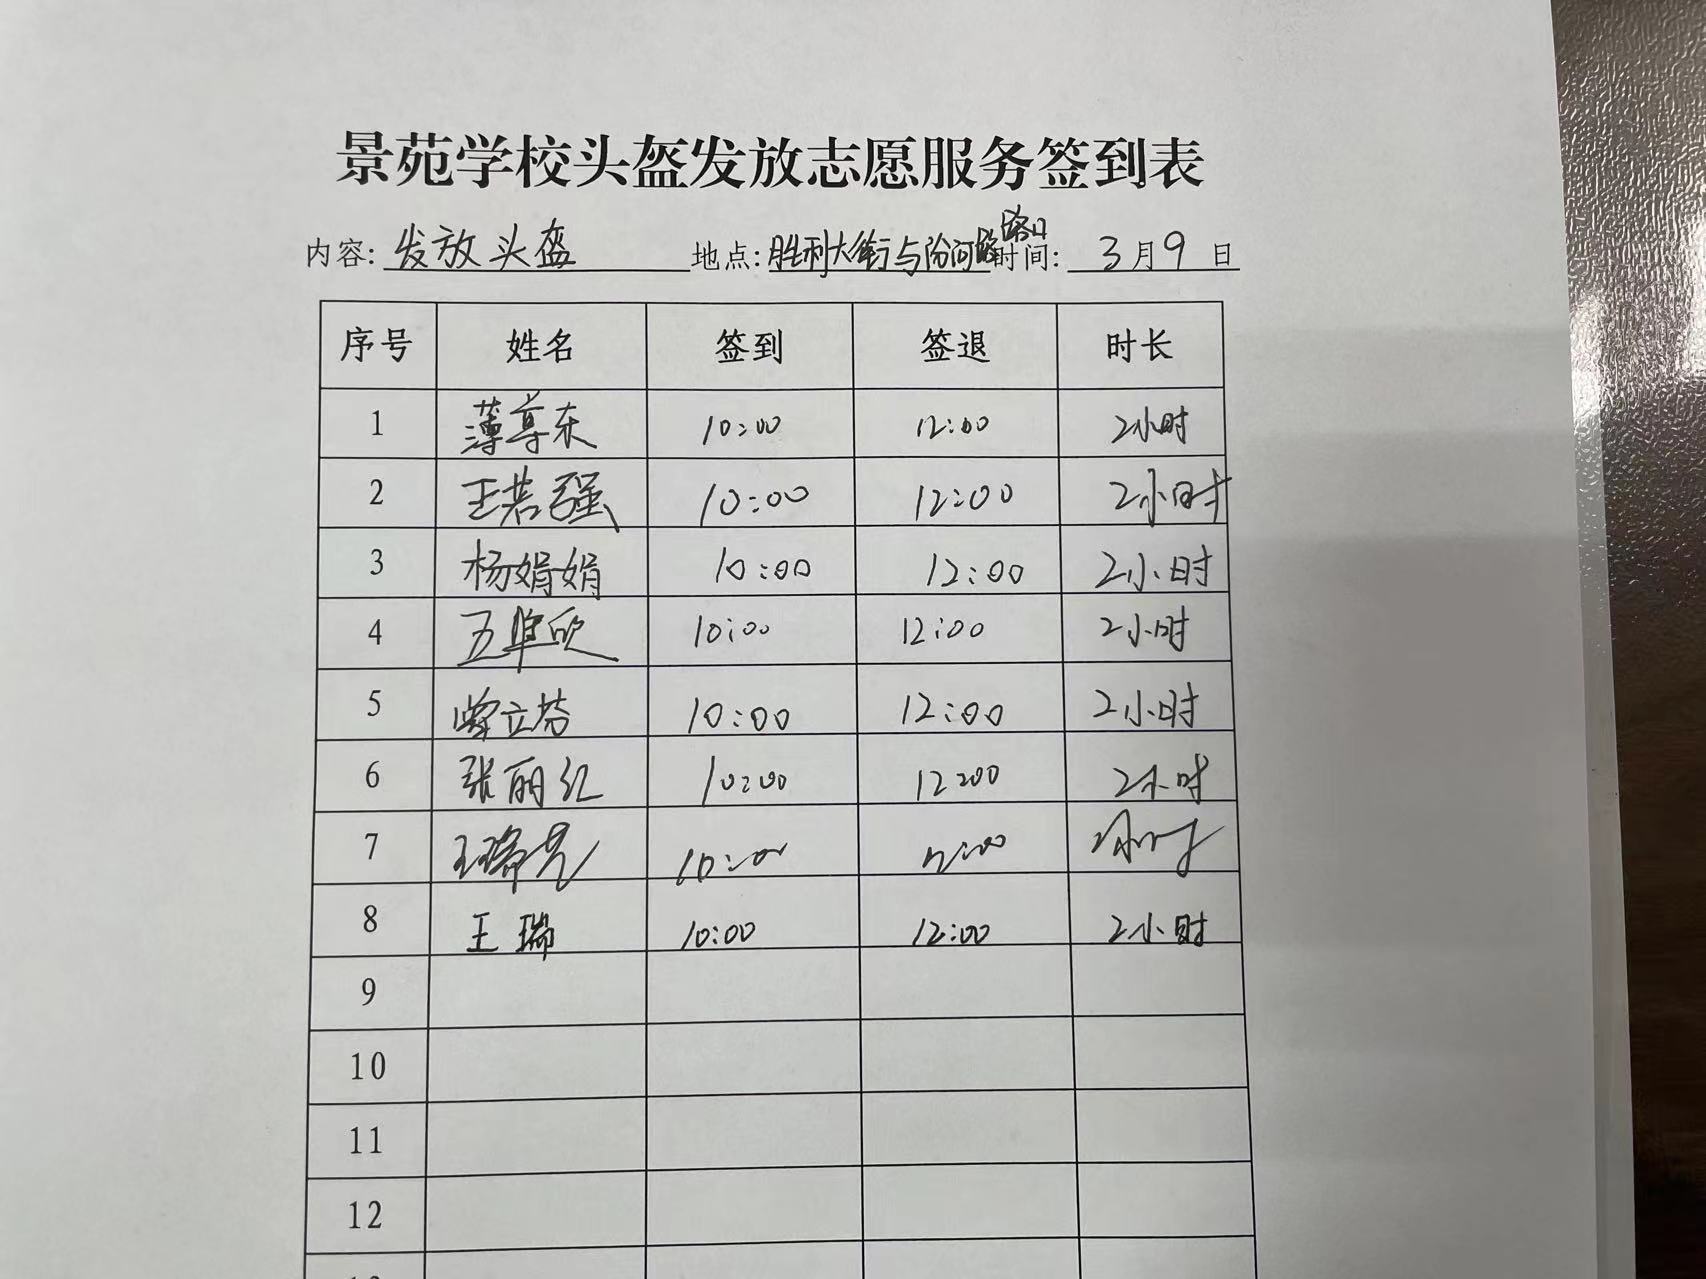 景苑学校头盔发放志愿服务签到表
内容: 发放头盔 地点: 胜利大街与汾河路路口 时间: 3月9日
序号 姓名 签到 签退 时长
1 薄尊东 10:00 12:00 2小时
2 王若强 10:00 12:00 2小时
3 杨娟娟 10:00 12:00 2小时
4 10:00 12:00 2小时
5 立芬 10:00 12:00 2小时
6 张丽红 10:00 12:00 2小时
7 王 10:00 12:00 2小时
8 王瑞 10:00 12:00 2小时
9
10
11
12